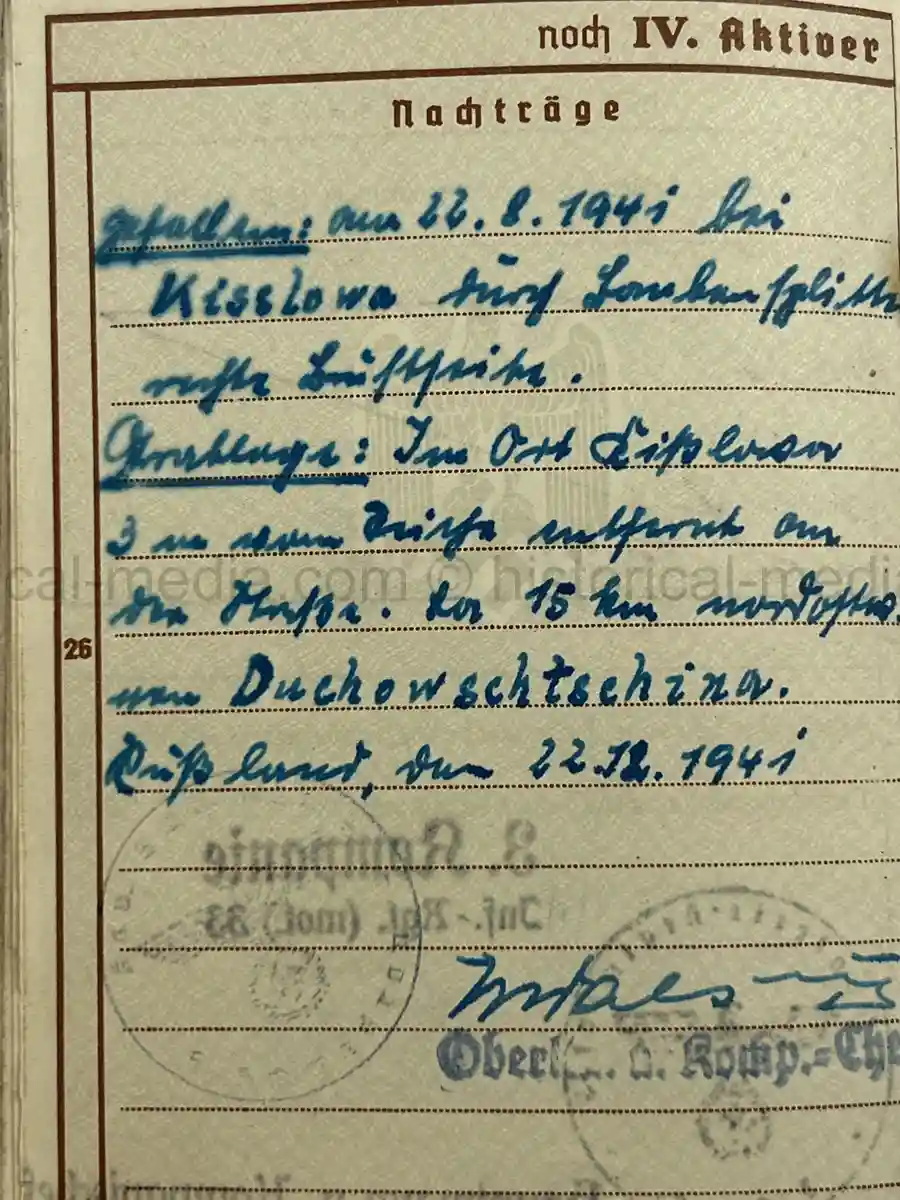 noch IV. Aktiver
Nachträge
gefallen: am 22.8.1941 bei
Kisslowa durch Bombensplitte
rechte Brustseite.
Grablage: Im Ort Kißlowa
3 m vom Teiche entfernt an
der Straße. Ca 15 km nordostw.
cal-media.com © historical-media
26
von Duchowschtschina.
Rußland, den 22.12.1941
3. Kompanie
Inf.-Rgt. (mot.) 33
Oberl. u. Komp.-Che